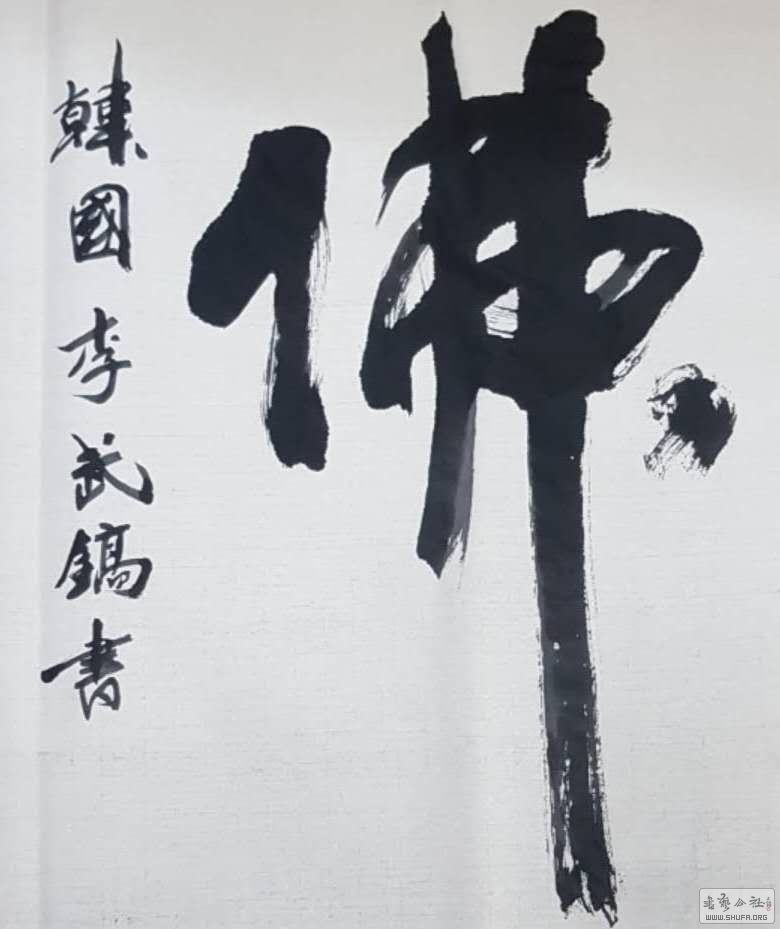 佛
韓國李武鎬書
書藝公社
WWW.SHUFA.ORG